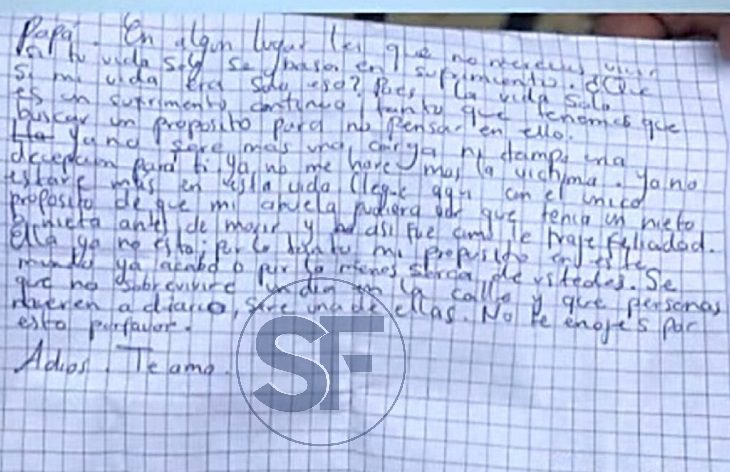 Papá. En algun lugar lei que no mereces vivir
si tu vida solo se basa en sufrimiento. ¿Que
si mi vida era solo eso? Pues la vida solo
es un sufrimento continuo tanto que tenemos que
buscar un proposito para no pensar en ello.
ya no sere mas una carga ni tampo una
decepcion para ti ya no me hare mas la victima. ya no
estare mas en esta vida llegue aqui con el unico
proposito de que mi abuela pudiera que tenia un nieto
o nieta antes de morir y asi fue le traje felicidad.
Ella ya no esta; por lo tanto mi proposito en este
mundo ya acabó o por lo menos serca de ustedes. Se
que no sobrevivire un dia en la calle y que personas
mueren a diario, sere una de ellas. No te enojes por
esto porfavor.
Adios. Te amo.
SF